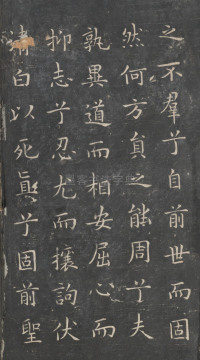 之不羣兮自前世而固
然何方員之能周兮夫
孰異道而相安屈心而
抑志兮忍尤而攘詢伏
清白以死眞兮固前聖